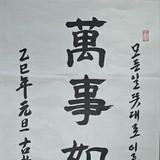 모든일 뜻대로 이루
萬事如
乙巳年 元旦 古